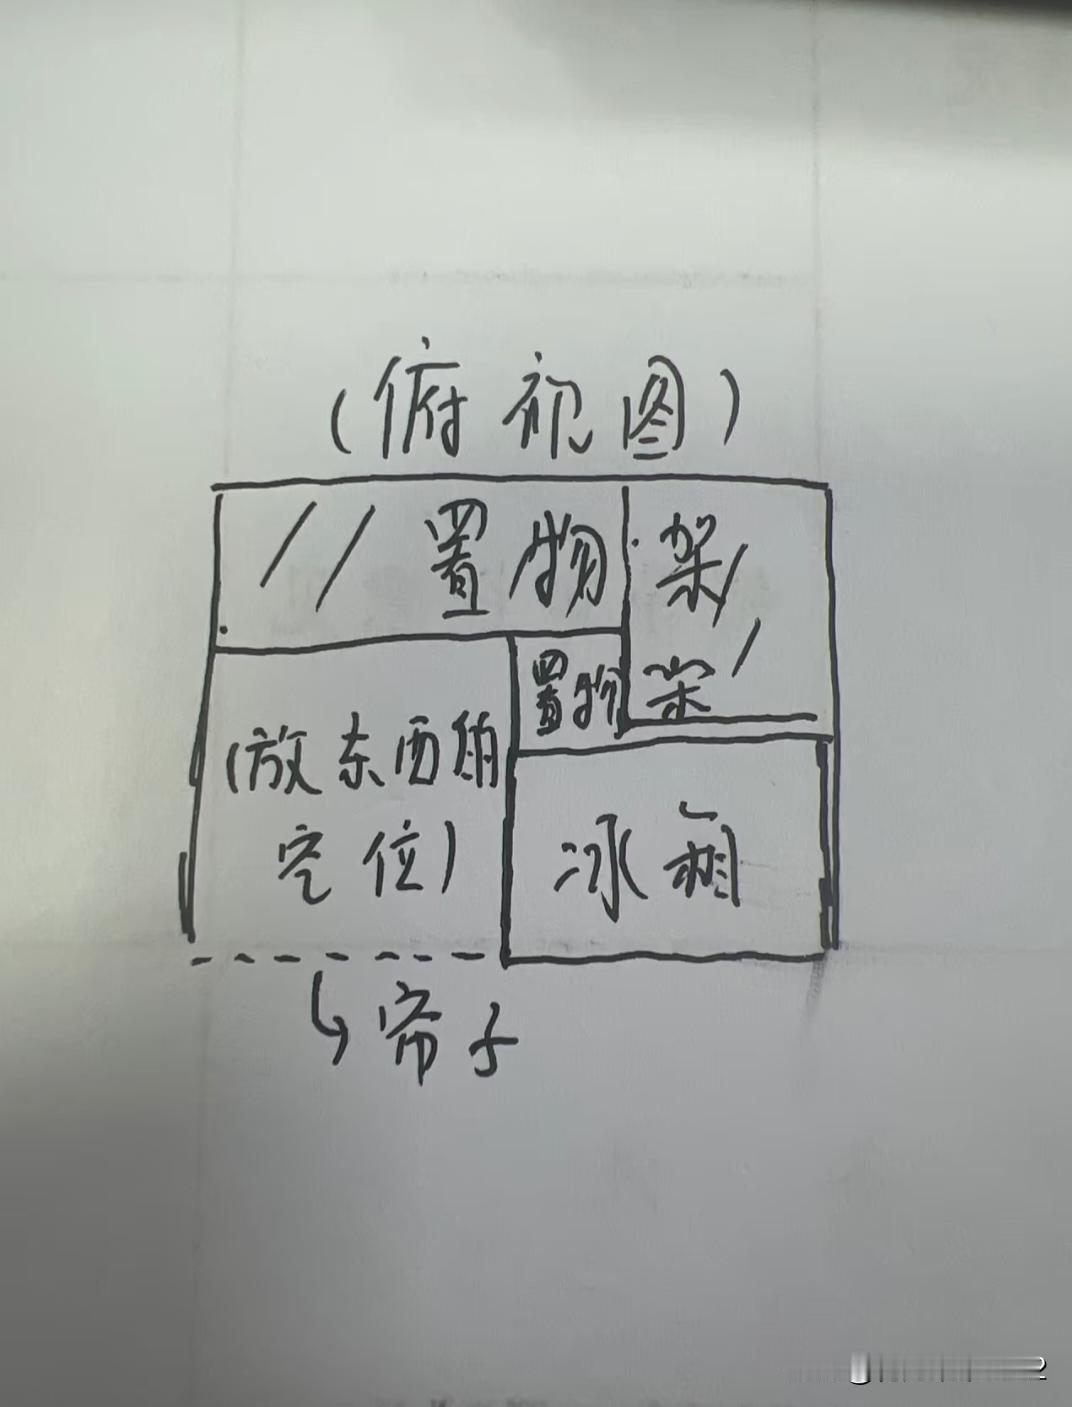 (俯视图)
// 置物架/
置物架/
(放东西的
空位)
冰箱
帘子